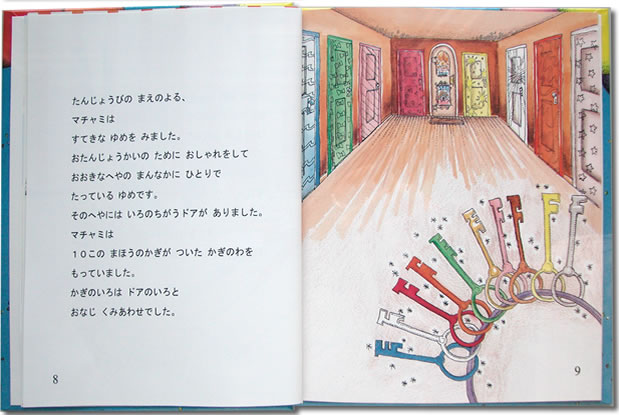 たんじょうびの まえのよる、
マチャミは
すてきな ゆめを みました。
おたんじょうかいの ために おしゃれをして
おおきなへやの まんなかに ひとりで
たっている ゆめです。
そのへやには いろのちがうドアが ありました。
マチャミは
１０この まほうのかぎが ついた かぎのわを
もっていました。
かぎのいろは ドアのいろと
おなじ くみあわせでした。
8
9